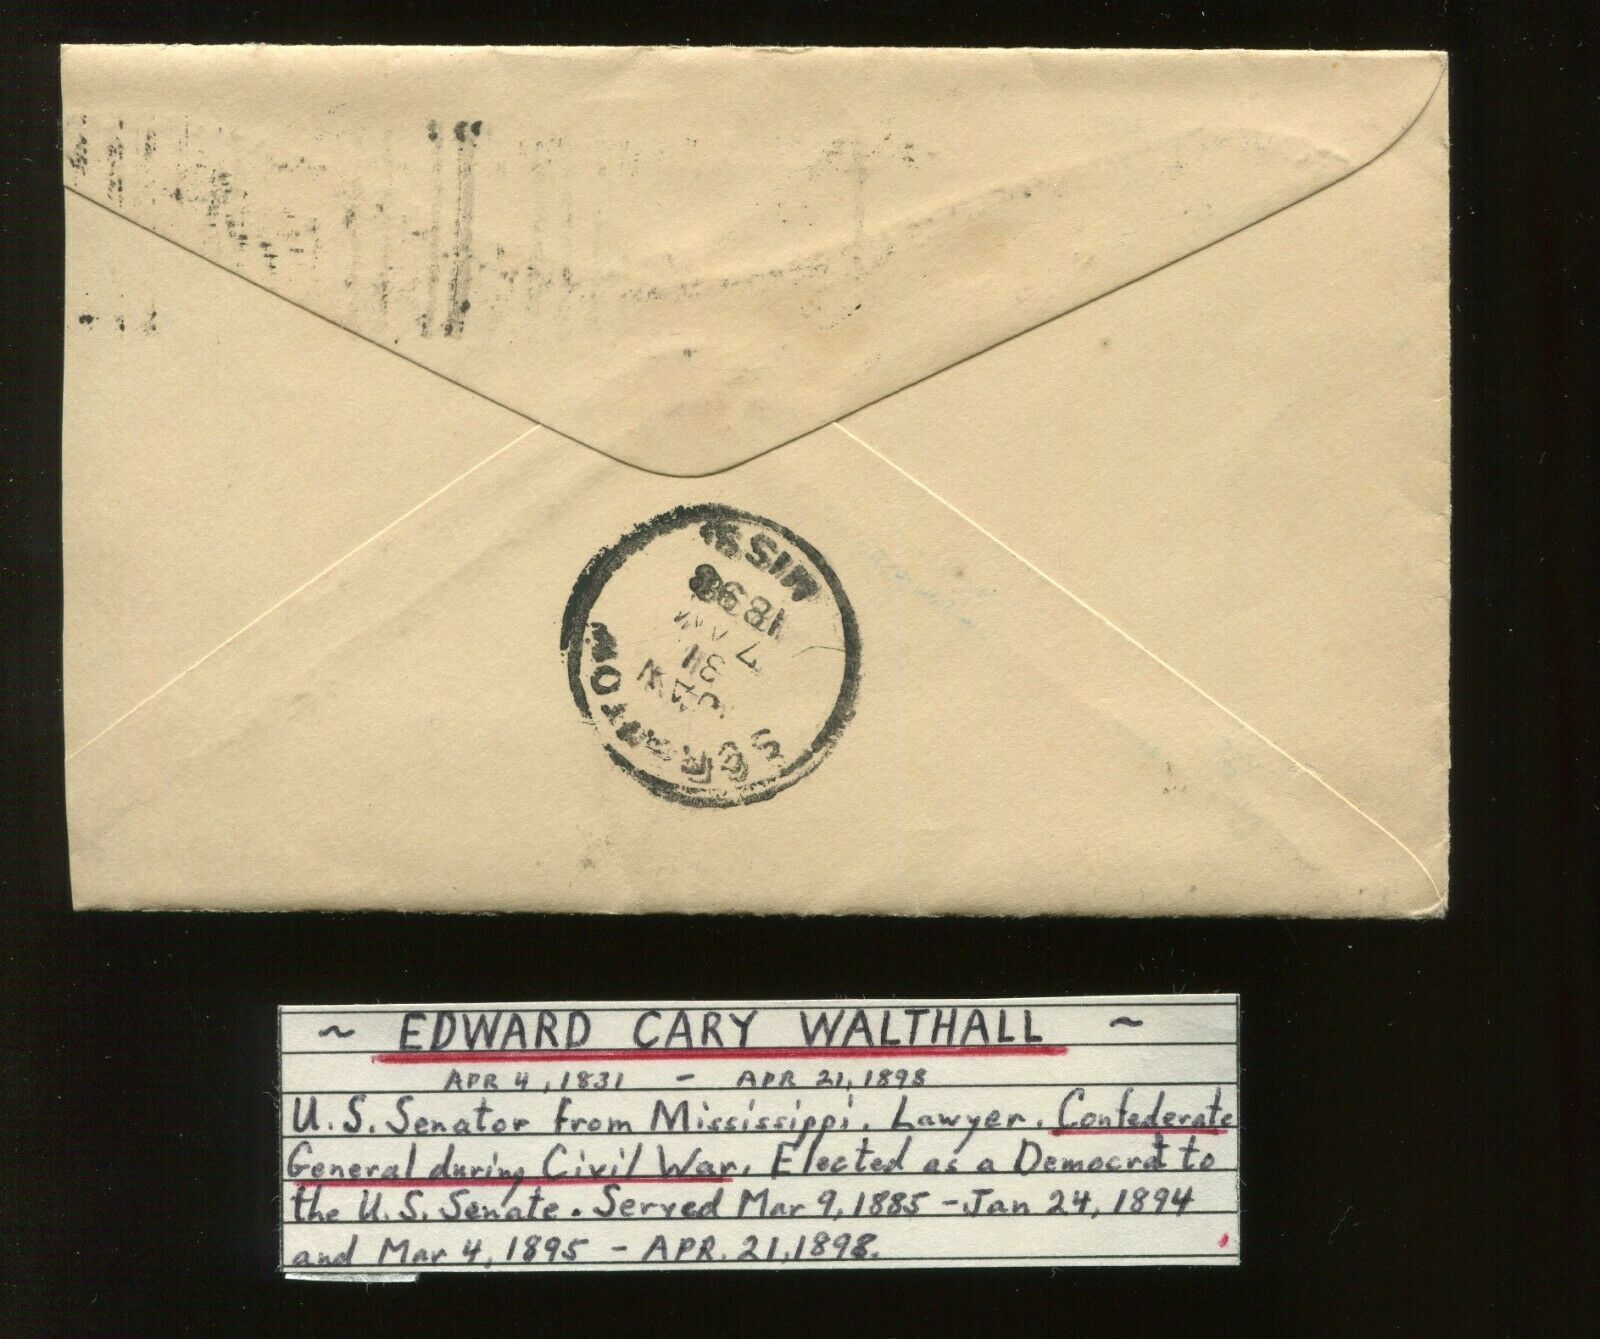 SCRANTON
MISS.
JAN
31
7 AM
1898
~ EDWARD CARY WALTHALL ~
APR 4, 1831 - APR 21, 1898
U.S. Senator from Mississippi. Lawyer. Confederate
General during Civil War. Elected as a Democrat to
the U.S. Senate. Served Mar 9, 1885 - Jan 24, 1894
and Mar 4, 1895 - APR. 21, 1898.